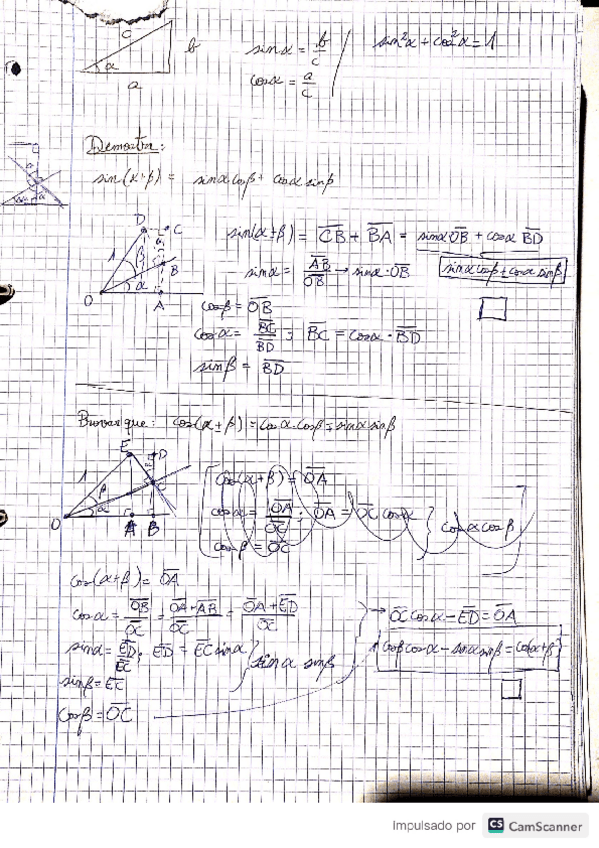 c
b
α
a
sinα = b/c
cosα = a/c
sin²α + cos²α = 1
Demostra:
sin(α+β) = sinα cosβ + cosα sinβ
D
C
1
β
B
α
O
A
sin(α+β) = CB + BA = sinα OB + cosα BD
sinα = AB/OB → sinα·OB
sinα cosβ + cosα sinβ
cosβ = OB
cosα = BC/BD ; BC = cosα · BD
sinβ = BD
Provar que: cos(α+β) = cosα·cosβ - sinα sinβ
E
D
1
β
C
α
O
A
B
cos(α+β) = OA
cosα = OA/OC ; OA = OC cosα } cosα cosβ
cosβ = OC
cos(α+β) = OA
cosα = OB/OC = OA+AB/OC = OA+ED/OC
→ OC cosα - ED = OA
sinα = ED/EC ; ED = EC sinα } sinα sinβ
cosβ cosα - sinα sinβ = cos(α+β)
sinβ = EC
cosβ = OC
Impulsado por CS CamScanner